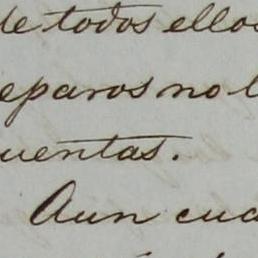 de todos ellos
eparos no l
uentas.
Aun cua